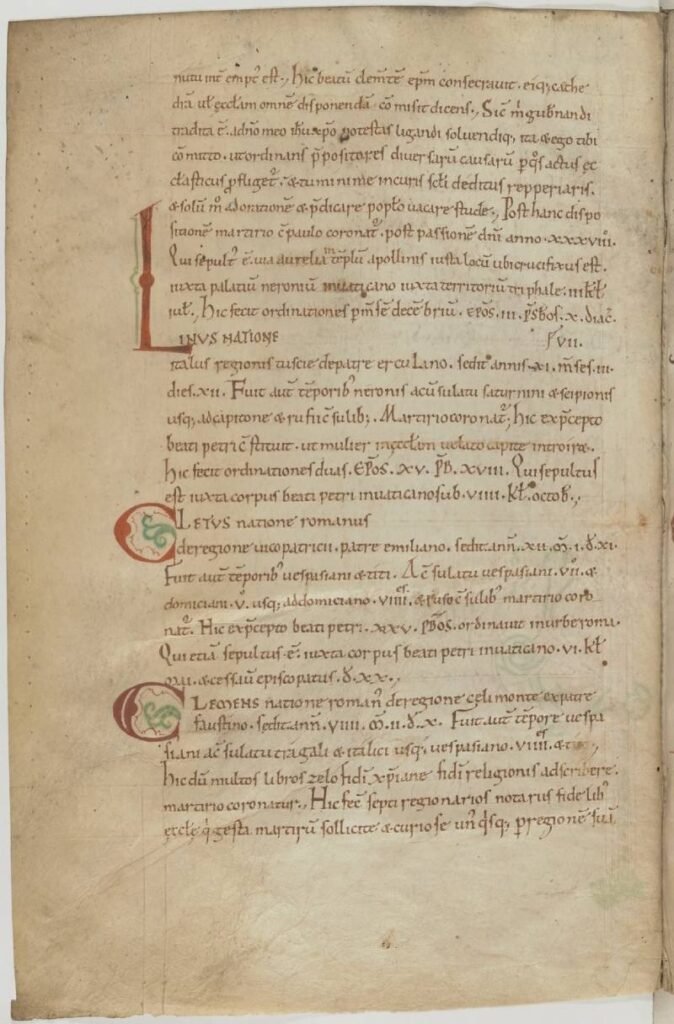 nutu inte empt' est., Hic beatū clemētē epm̄ consecravit. eiq; cathe
drā vl' ęcclam omnē disponendā cōmisit dicens., Sic m̄ gubnandi
tradita ē. adno meo ihu xpo potestas ligandi solvendiq; ita & ego tibi
cōmitto. ut ordinans p̄positores diversarū causarū p quos actus ęc
clasticus pfliget. & tu minime in curis scli deditus repperiaris.
& solū m̄ adoratione & p̄dicare poplo vacare stude., Post hanc dispo
sitionē martirio cū paulo coronat. post passionē dn̄i anno. xxxviii.
Qui sepult' ē. via aurelia in tēplū apollinis iuxta locū ubi crucifixus est.
iuxta palatiū neroniū in uaticano iuxta territoriū triphale. iii kl
iul., Hic fecit ordinationes p m̄sē decēbriū. epos. iii. prbos. x. diac.
LINUS NATIONE vii.
italus regionis tuscie de patre erculano. sedit annis. xi. m̄ses. iii.
dies. xii. Fuit aut tēporib' neronis a cūsulatu saturnini & scipionis
usq; ad capitone & rufi cūsulib;. Martirio coronat'. hic ex p̄cepto
beati petri cstituit. ut mulier in ęcclam velato capite introire.
Hic fecit ordinationes duas. epos. xv. prb. xviii. Qui sepultus
est iuxta corpus beati petri in uaticano sub. viiii. kl. octob.,
CLETUS natione romanus
de regione vico patricii. patre emiliano. sedit ann. xii. m̄. i. d. xi.
Fuit aut tēporib' vespasiani & titi. A cūsulatu vespasiani. vii. &
domiciani. v. usq; ad domiciano. viiii. & rufo cūsulib' martirio coro
nat'. Hic ex p̄cepto beati petri. xxv. prbos. ordinavit in urbe roma.
Qui etiā sepultus ē. iuxta corpus beati petri in uaticano. vi. kl
mai. & cessavit episcopatus. d. xx.,
CLEMENS natione roman' de regione celi monte ex patre
faustino. sedit ann. viiii. m̄. ii. d. x. Fuit aut tēpore vespa
siani a cūsulatu tragali & italici usq; vespasiano. viiii. &
Hic dū multos libros zelo fidei xpiane fidei religionis adscribere.
martirio coronatur. Hic fec septē regionarios notarus fidelib'
ęcclę qui gesta martirū sollicite & curiose unq'sq; p regionē suā